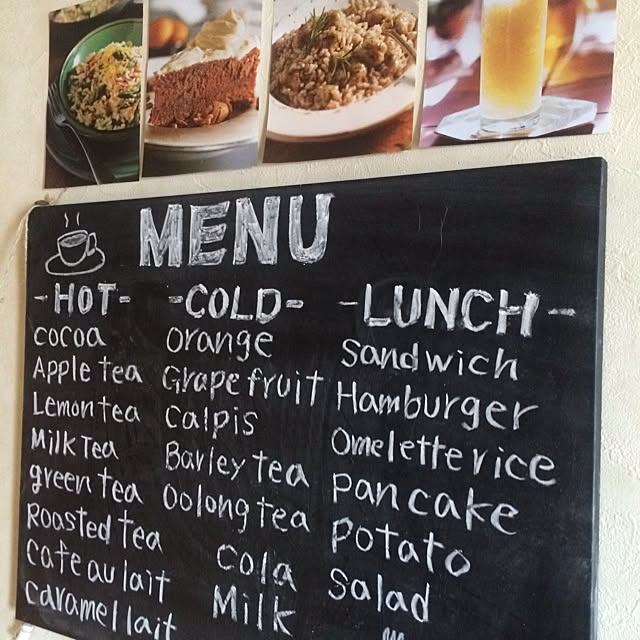 MENU
-HOT-
cocoa
Apple tea
Lemon tea
Milk Tea
green tea
Roasted tea
cafe au lait
caramel lait
-COLD-
orange
Grapefruit
calpis
Barley tea
Oolong tea
cola
Milk
-LUNCH-
Sandwich
Hamburger
Omelette rice
pancake
potato
salad